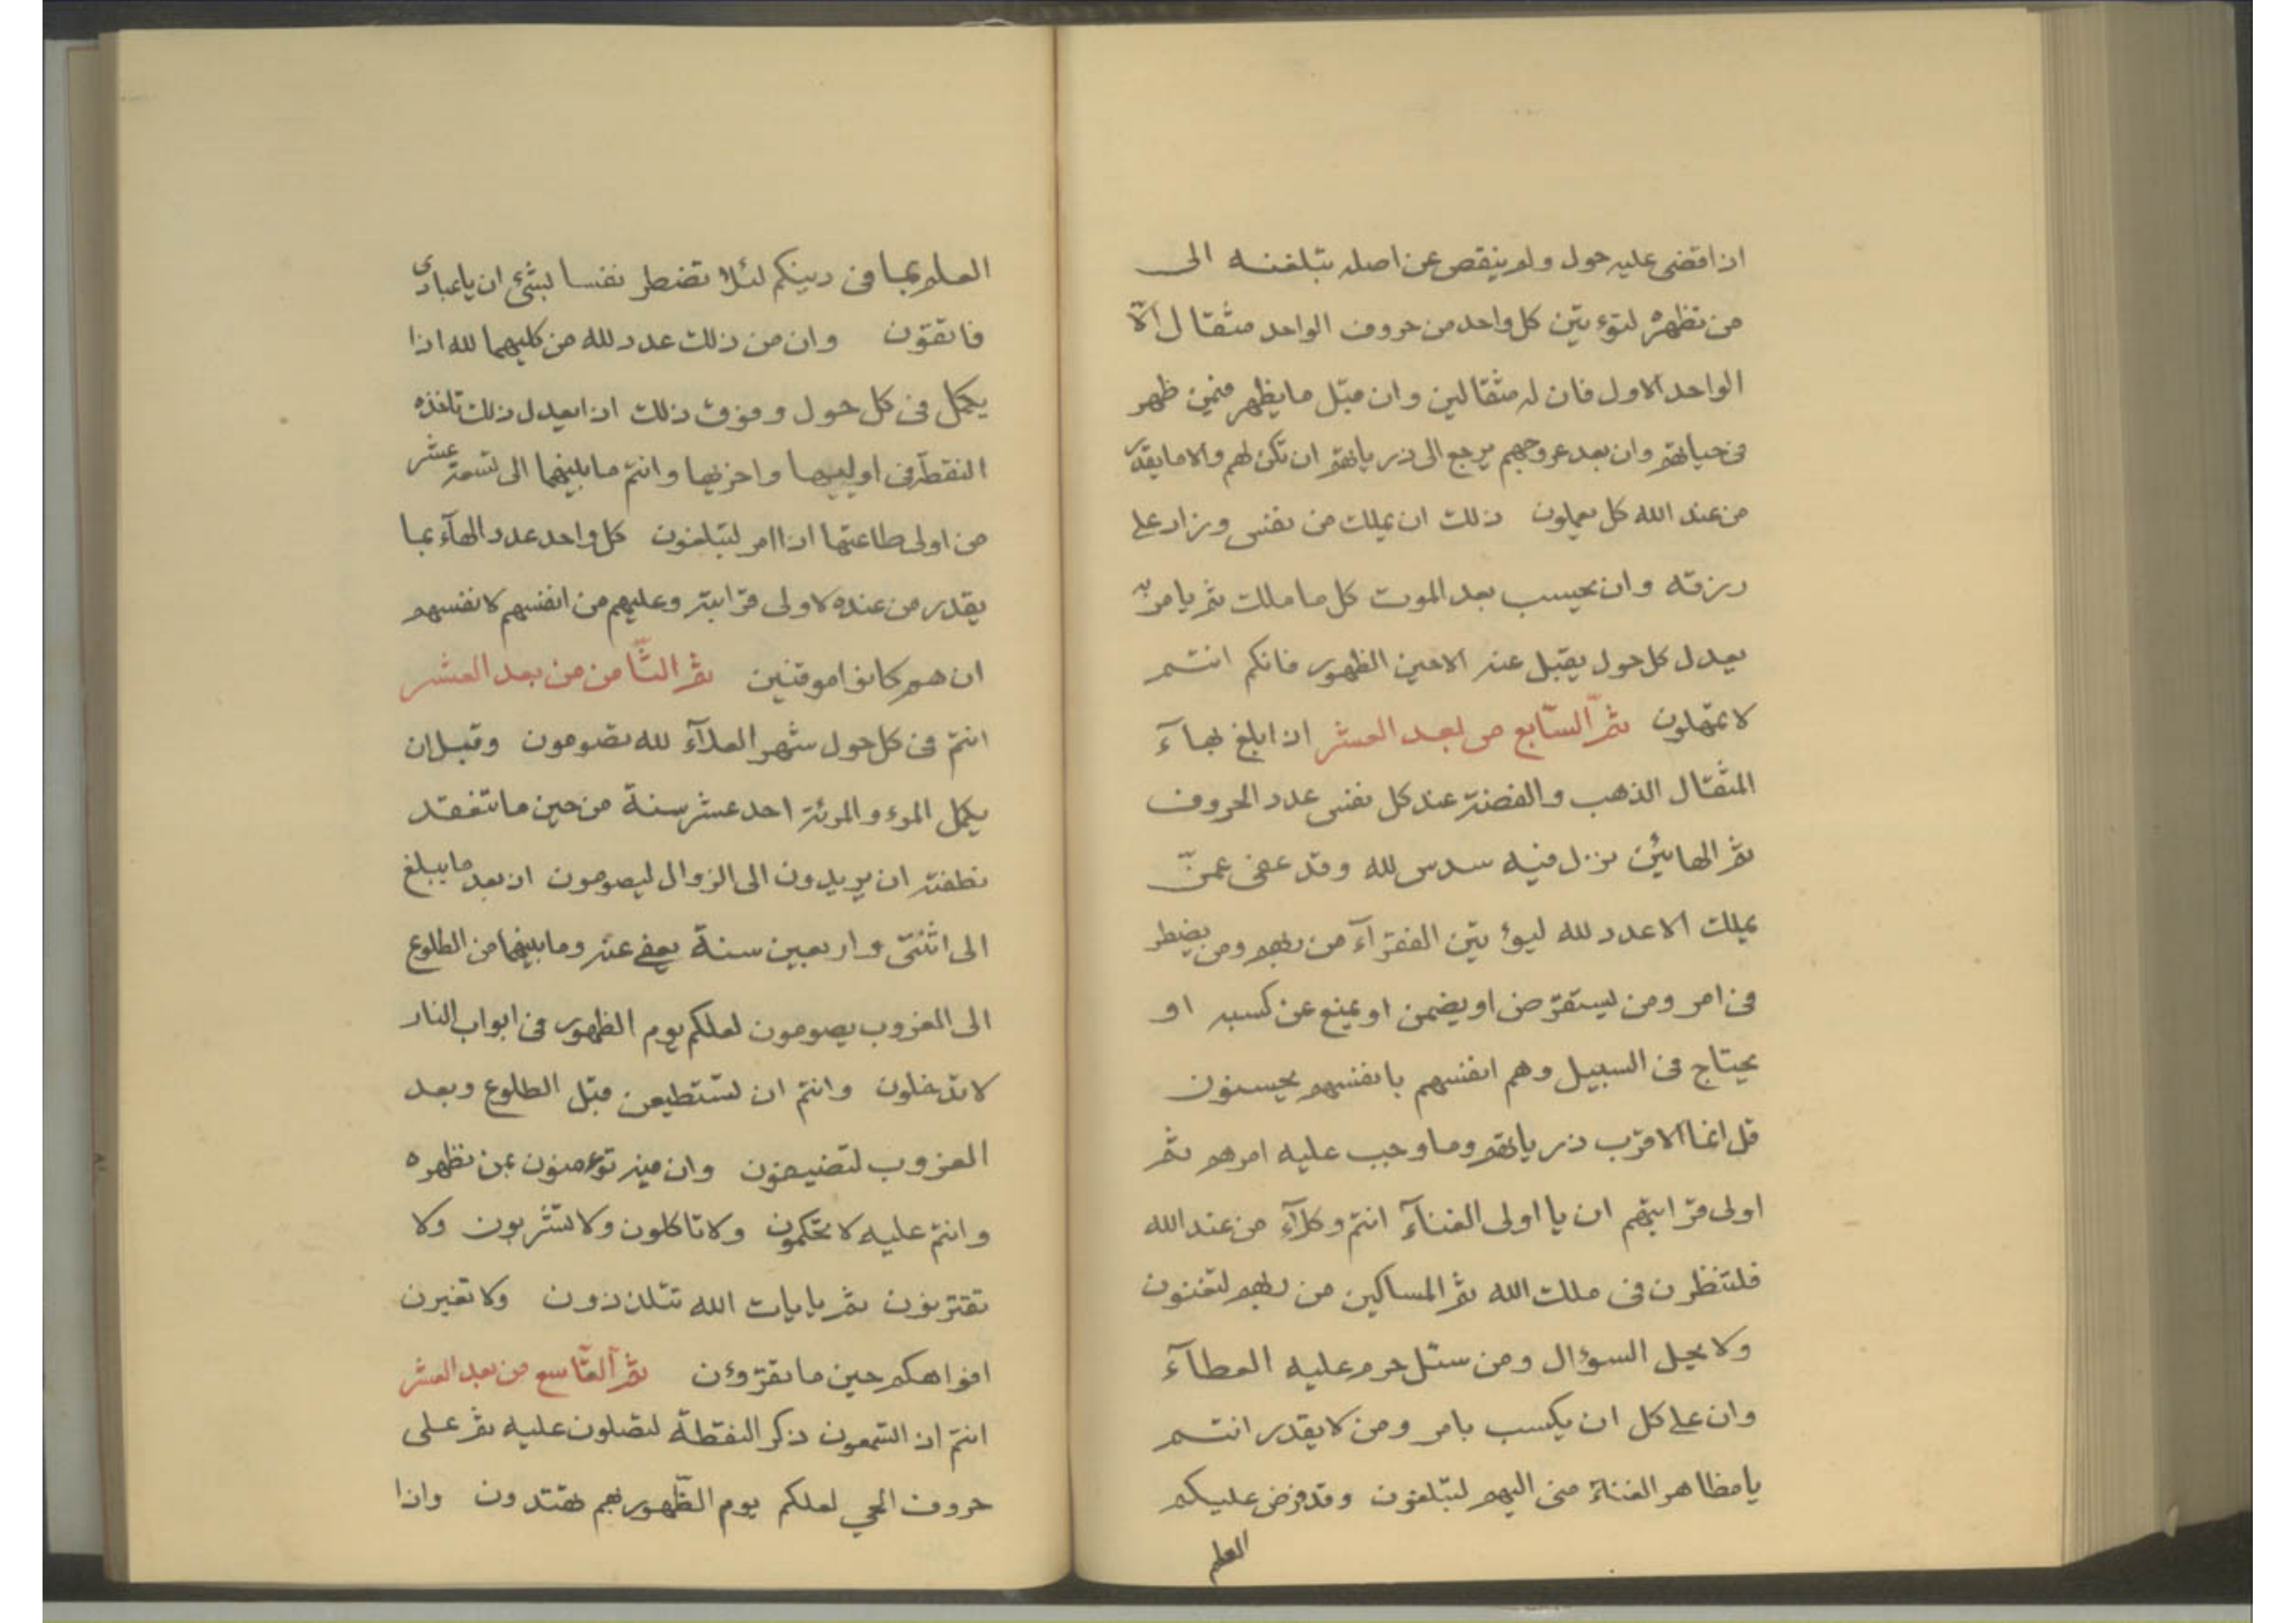 اذا قضى عليه حول ولم ينقص عن اصله تبلغنه الى
من نظهره لتوءتين كل واحد من حروف الواحد مثقال الّا
الواحد الاول فان له مثقالين وان مثل ما يظهر فمين ظهر
فى حياتهم وان بعد عروجهم يرجع الى ذرياتهم ان تكن لهم والا ما يقدر
من عند الله كل يعملون ذلك ان يملك من نفس وزاد على
رزقه وان يحسب بعد الموت كل ما ملك ثم يامر به
بعدل كل حول يقبل عنه الا حين الظهور فانكم انتم
لا تمهلون ثمّ السّابع من بعد العشر اذا بلغ بهآء
المثقال الذهب والفضة عند كل نفس عدد الحروف
ثم الهائين نزل فيه سدس لله وقد عفى عمنّ
يملك الا عدد لله ليؤتين الفقرآء من بهم ومن يضطر
فى امر ومن يستقرض او يضمن او يمنع عن كسبه او
يحتاج فى السبيل وهم انفسهم بانفسهم يحسنون
قل انما الاقرب ذرياتهم وما وجب عليه امرهم ثم
اولى قرابتهم ان يا اولى الغنآء انتم وكلآء من عند الله
فلتنظرن فى ملك الله ثم المساكين من ربهم لتغنون
ولا يحل السؤال ومن سئل حرم عليه العطآء
وان على كل ان يكسب بامر ومن لا يقدر انتم
يا مظاهر الغناء منى اليهم لتبلغون وقد فرض عليكم
العلم
العلم بما فى دينكم لئلا تضطر نفسا بشئ ان يا عبادى
فاتقون وان من ذلك عدد لله من كليهما لله اذا
يكمل فى كل حول وفوق ذلك اذا يعدل ذلك تاخذه
النقطة فى اوليها واخريها وانتم ما بينهما الى تسعة عشر
من اولى طاعتها اذا امر لتبلغون كل واحد عدد الهآء بما
يقدر من عنده لاولى قرابته وعليهم من انفسهم لانفسهم
ان هم كانوا موقنين ثم الثّامن من بعد العشر
انتم فى كل حول شهر العلآء لله تصومون وقبل ان
يكمل المرء والمرئة احد عشر سنة من حين ما تنعقد
نطفته ان يريدون الى الزوال ليصومون ان بعد ما يبلغ
الى اثنّى واربعين سنة يعفى عنه وما بينهما من الطلوع
الى الغروب يصومون لعلكم يوم الظهور فى ابواب النار
لا تدخلون وانتم ان تستطيعن قبل الطلوع وبعد
الغروب لتضيفون وان فيه توءمنون بمن نظهره
وانتم عليه لا تحكمون ولا تاكلون ولا تشربون ولا
تقتربون ثم بايات الله تتلذذون ولا تغيرن
افواهكم حين ما تقرؤن ثم التّاسع من بعد العشر
انتم اذ التسمعون ذكر النقطة لتصلون عليه ثم على
حروف الحي لعلكم يوم الظّهور بهم تهتدون واذا